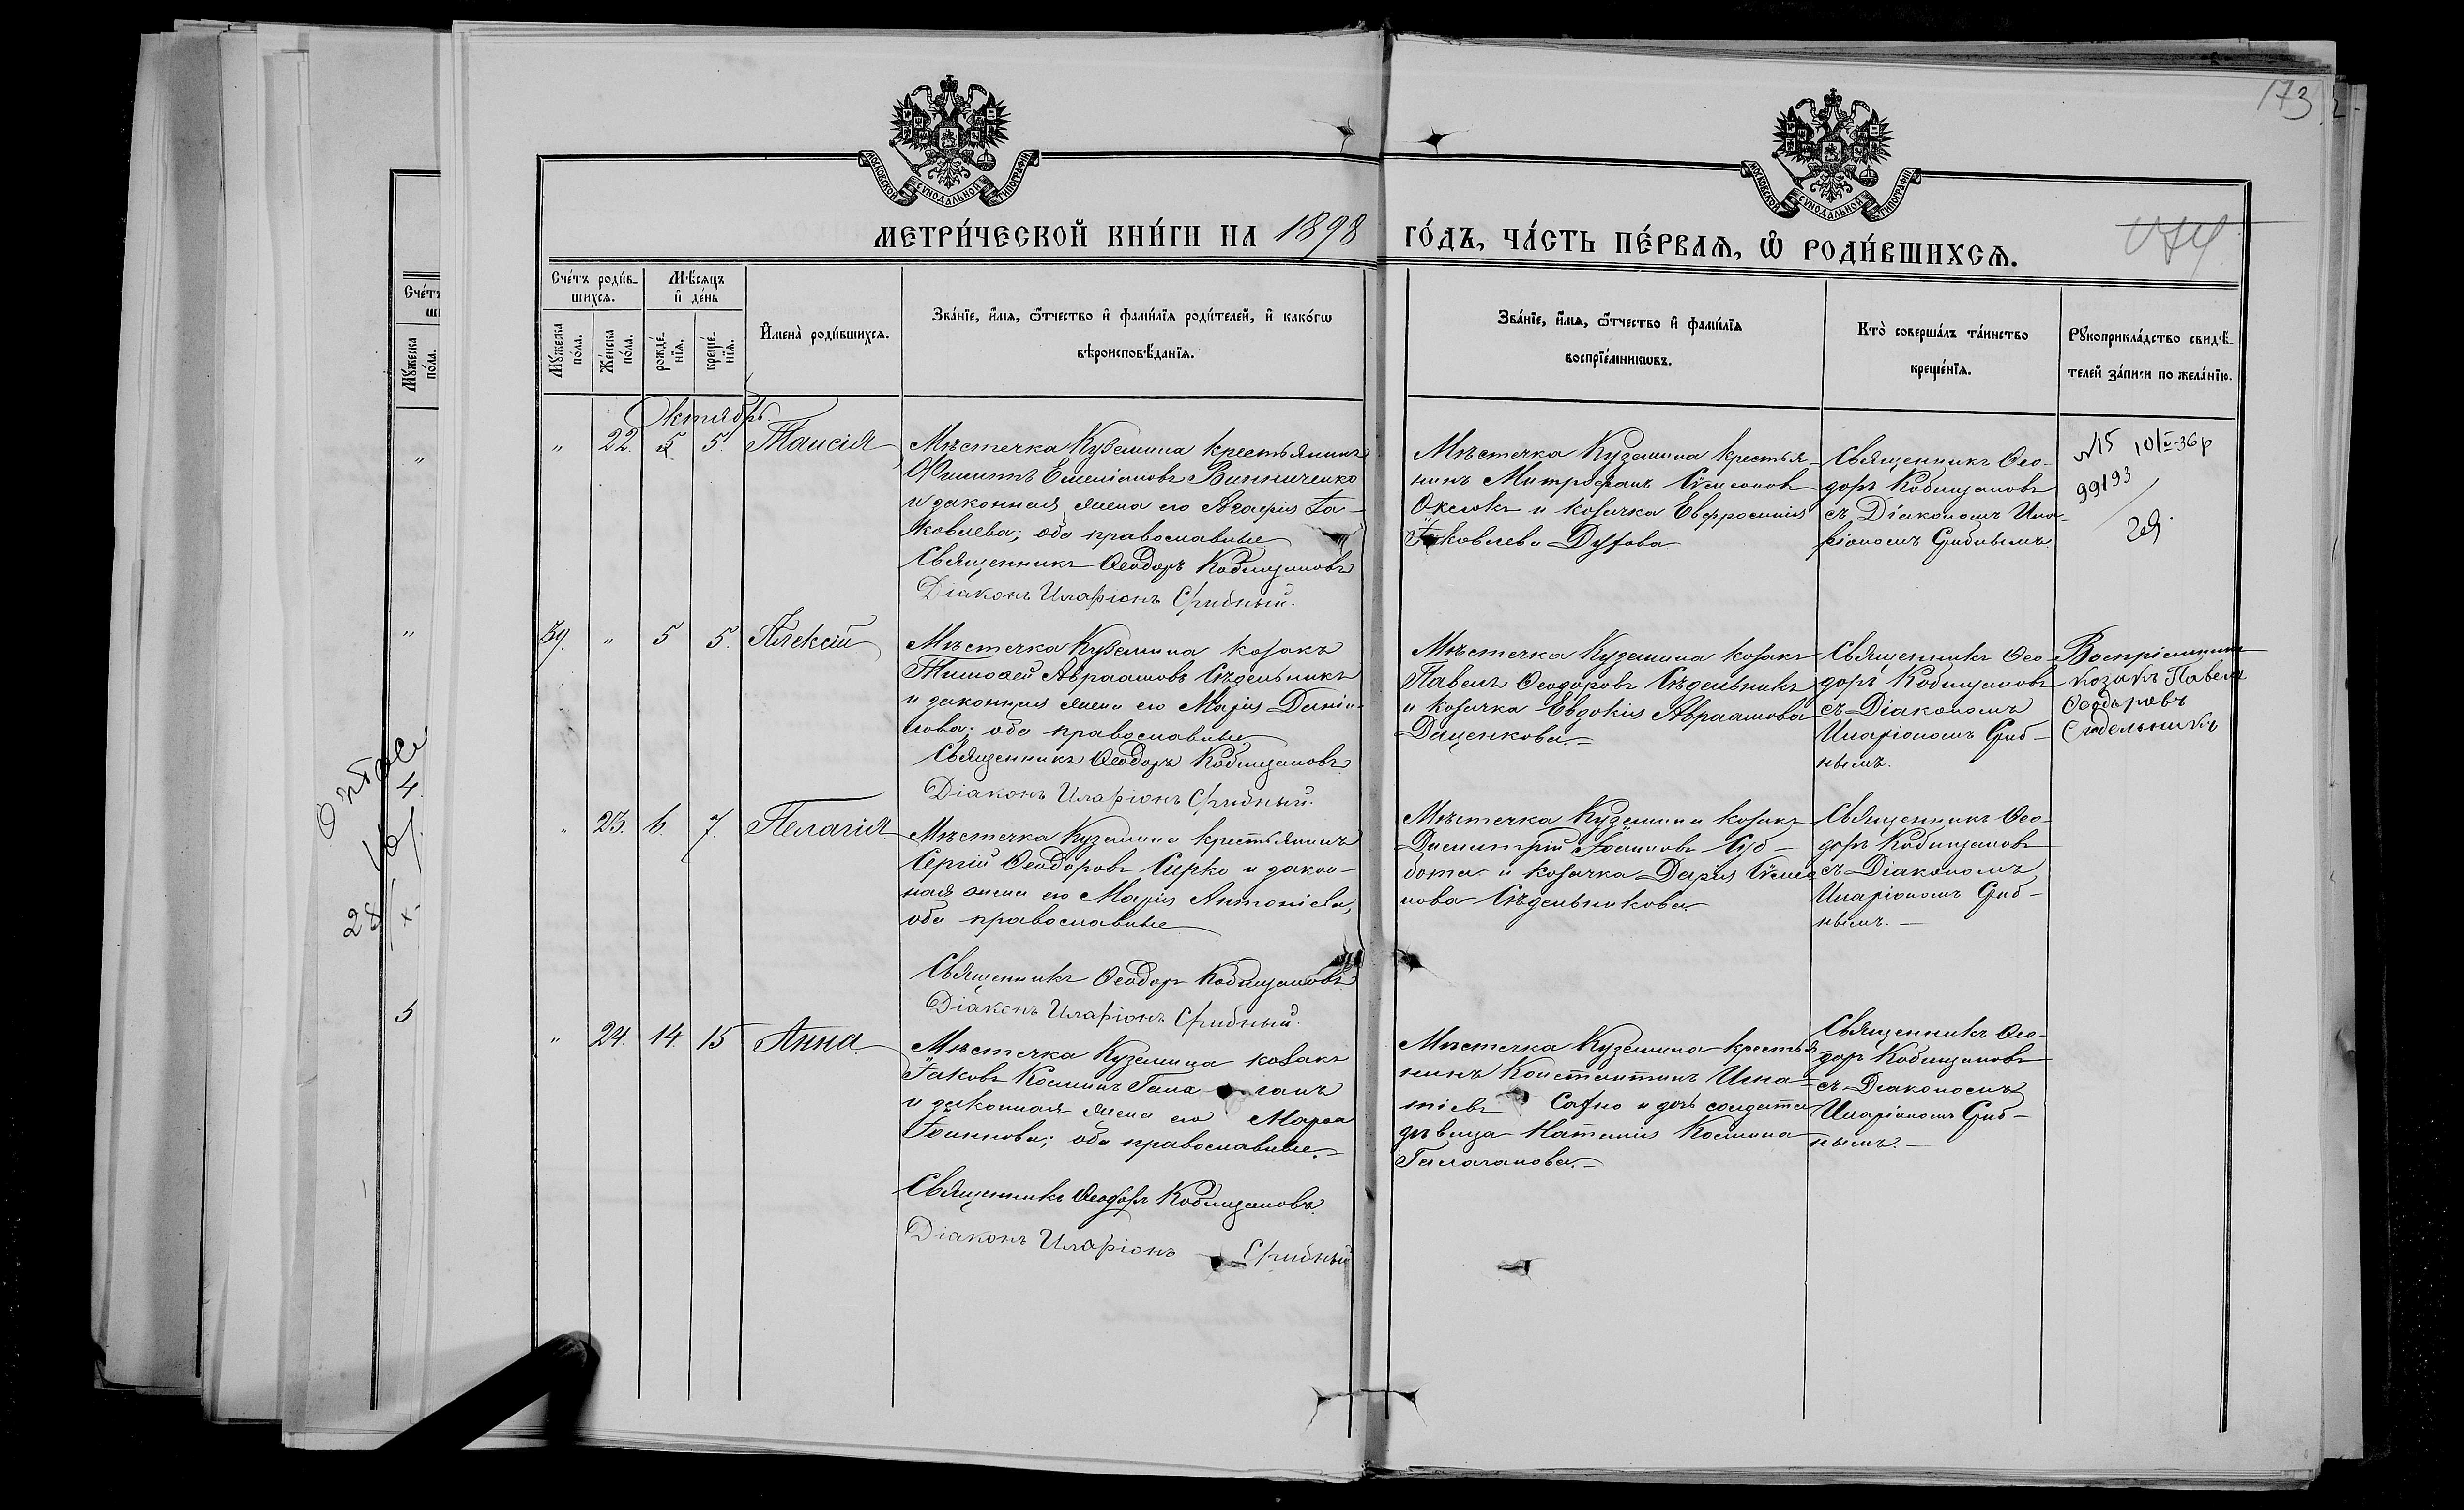 173
МОСКОВСКОЙ СУНОДАЛЬНОЙ ТИПОГРАФІИ
МОСКОВСКОЙ СУНОДАЛЬНОЙ ТИПОГРАФІИ
МЕТРИ́ЧЕСКОЙ КНИ́ГИ НА 1898 ГО́ДЪ, ЧА́СТЬ ПЕ́РВАѦ, Ѡ҆ РОДИ́ВШИХСѦ.
Сче́тъ роди́в-
шихсѧ.
Мꙋ́жеска по́ла.
Же́нска по́ла.
Мѣ́сѧцъ и҆ де́нь
рожде́-нїѧ.
креще́-нїѧ.
И҆мена̀ роди́вшихсѧ.
Зва́нїе, и҆́мѧ, ѻ҆́тчество и҆ фами́лїѧ роди́телей, и҆ како́гѡ
вѣроисповѣ́данїѧ.
Зва́нїе, и҆́мѧ, ѻ҆́тчество и҆ фами́лїѧ
воспрїе́мникѡвъ.
Кто̀ соверша́лъ та́инство
креще́нїѧ.
Рꙋкоприкла́дство свидѣ́-
телей за́писи по жела́нїю.
Октябрь.
" 22. 5 5. Таисія
Мѣстечка Куземина крестьянинъ
Филиппъ Емеліановъ Винниченко
и законная жена его Агафія Іа-
ковлева; оба православные
Священникъ Ѳеодоръ Кобищановъ
Діаконъ Иларіонъ Грибный.
Мѣстечка Куземина крестья-
нинъ Митрофанъ Сѵмеоновъ
и козачка Евфросинія
Іаковлева
Священникъ Ѳео-
доръ Кобищановъ
съ Діакономъ Ила-
ріономъ Грибнымъ.
№15 10/V-36р
99193
39. " 5 5. Алексій
Мѣстечка Куземина козакъ
Тимоѳей Авраамовъ Сѣдельникъ
и законная жена его Марія Даніи-
лова; оба православные
Священникъ Ѳеодоръ Кобищановъ
Діаконъ Иларіонъ Грибный.
Мѣстечка Куземина козакъ
Павелъ Ѳеодоровъ Сѣдельникъ
и козачка Евдокія Авраамова
Даценкова.
Священникъ Ѳео-
доръ Кобищановъ
съ Діакономъ
Иларіономъ Гриб-
нымъ.
Воспріемникъ
козакъ Павелъ
Ѳеодоровъ
Сѣдельникъ
" 23. 6. 7. Пелагія
Мѣстечка Куземина крестьянинъ
Сергій Ѳеодоровъ Сирко и закон-
ная жена его Марія Антоніева,
оба православные
Священникъ Ѳеодоръ Кобищановъ
Діаконъ Иларіонъ Грибный.
Мѣстечка Куземина козакъ
Димитрій Іоанновъ Суб-
бота и козачка Дарія Сѵмео-
нова Сѣдельникова.
Священникъ Ѳео-
доръ Кобищановъ
съ Діакономъ
Иларіономъ Гриб-
нымъ.
" 24. 14. 15 Анна
Мѣстечка Куземина козакъ
Іаковъ Косминъ Гала ганъ
и законная жена его Марѳа
Іоаннова; оба православные.
Священникъ Ѳеодоръ Кобищановъ.
Діаконъ Иларіонъ Грибный
Мѣстечка Куземина крестья-
нинъ Константинъ Игна-
тіевъ Сахно и дочь солдата
дѣвица Наталія Космина
Галаганова.
Священникъ Ѳео-
доръ Кобищановъ
съ Діакономъ
Иларіономъ Гриб-
нымъ.